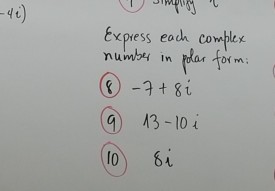 -4i)
7 Simplify i
Express each complex
number in polar form:
8 -7+8i
9 13-10i
10 8i